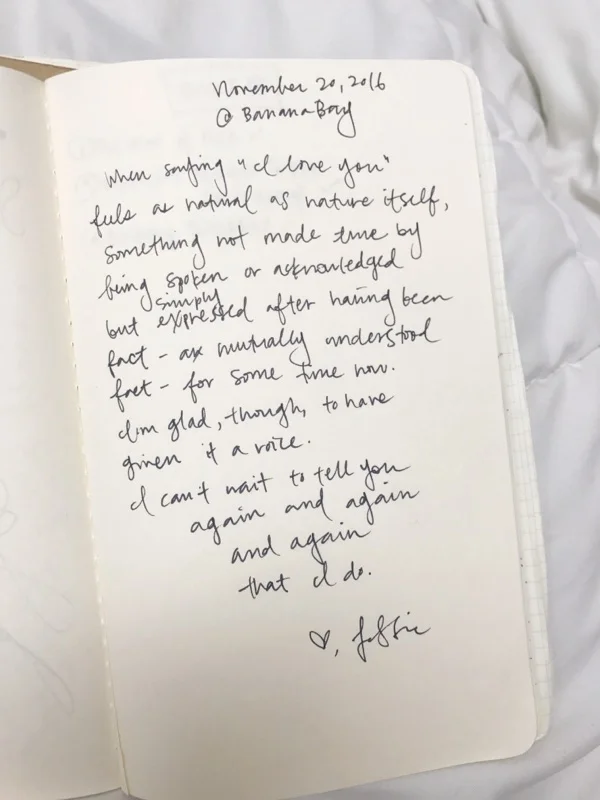 November 20, 2016
@ Banana Bay
When saying "I love you"
feels as natural as nature itself,
something not made true by
being spoken or acknowledged
but simply expressed after having been
fact - a mutually understood
fact - for some time now.
I'm glad, though, to have
given it a voice.
I can't wait to tell you
again and again
and again
that I do.
♡,